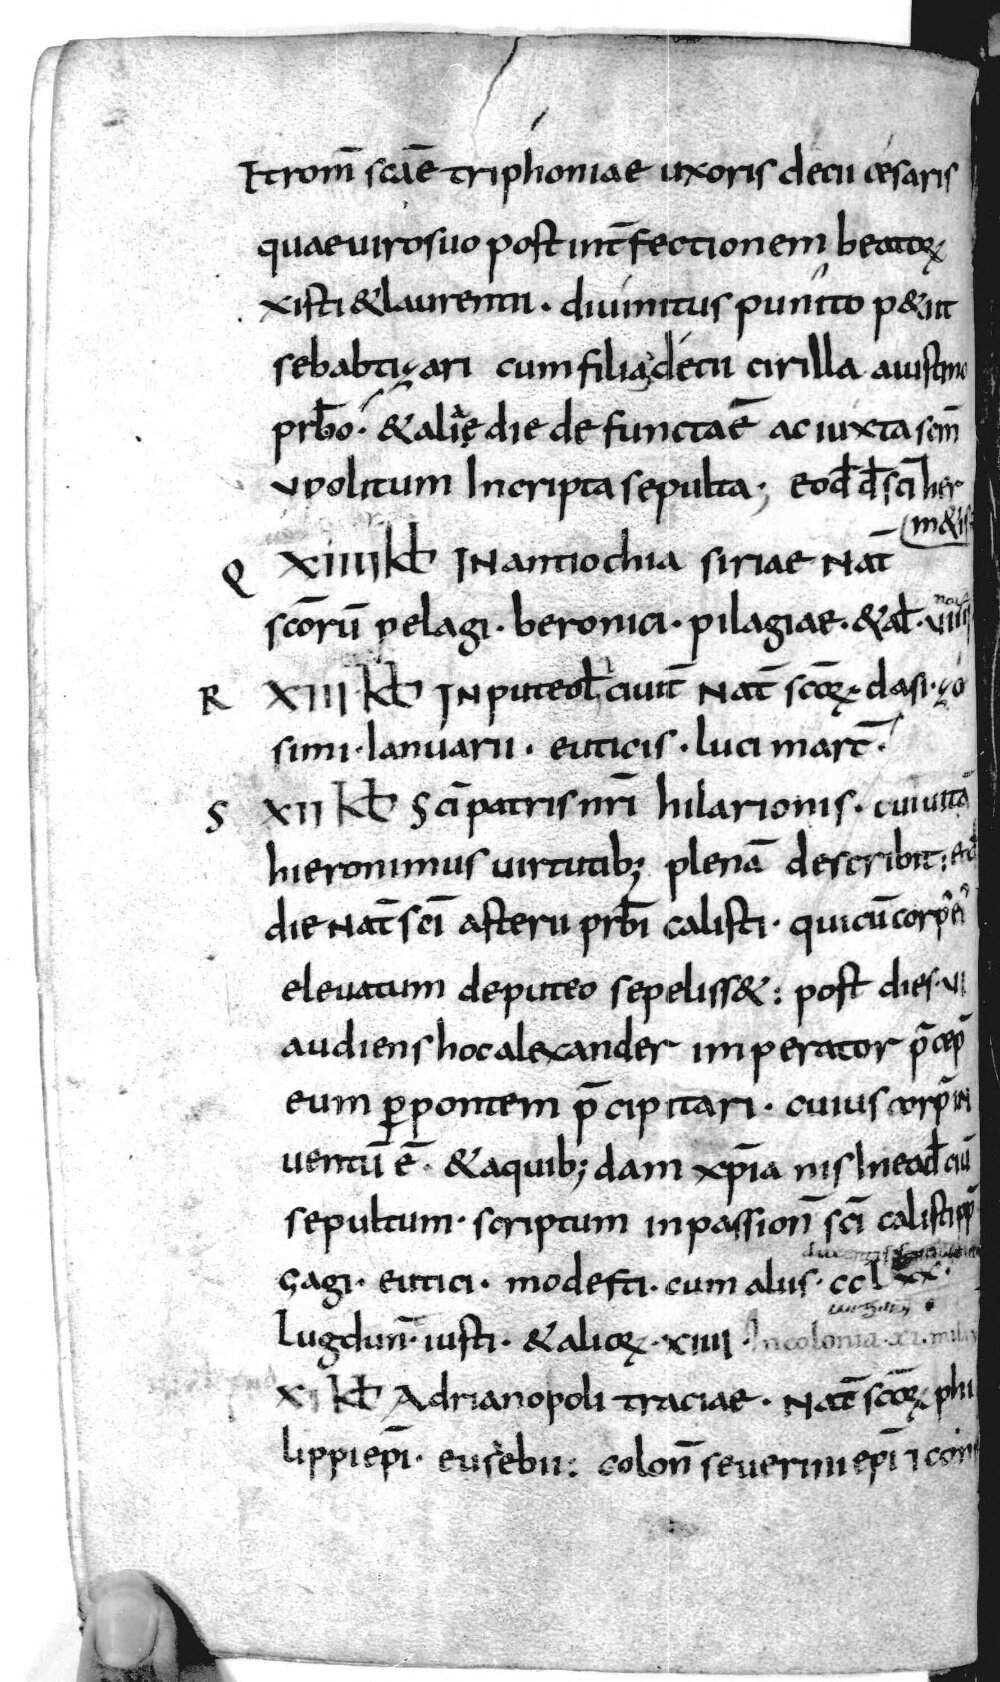 Et rom̄ scāe triphoniae uxoris decii cesaris
quae viro suo post int̄fectionem beatorꝝ
xisti & laurentii · divinitus punito p&iit
se babtizari cum filia decii cirilla a iustino
prb̄o · & alię die defuncta ē ac iuxta scm̄
ypolitum In cripta sepulta ; eod̄ d̄ sci her
m&is
Q XIIII kł IN antiochia siriae Nat̄
scōrū pelagi · beronici · pilagiae · & ał · viiii
R XIII kł IN puteoł civit̄ Nat̄ scōꝝ · dasi · zo
simi · Ianuarii · euticis · luci mart̄ ·
S XII kł Sci patris nr̄i hilarionis · cui vitā
hieronimus virtutib; plenā describit : eod̄
die Nat̄ sci asterii prb̄i calisti · qui cū corp̄ ei
elevatum de puteo sepeliss& : post dies · vi
audiens hoc alexander imperator p̄cep̄
eum ꝑ pontem p̄cipitari · cuius corp̄ in
ventū ē · & a quib; dam xp̄ianis In ead̄ civ̄
sepultum · scriptum in passion̄ sci calisti pp̄
zagi · eutici · modesti · cum aliis · cclxx ·
Lugdun̄ · iusti · & aliorꝝ · xiiii · In colonia · xi · mila
XI kł Adrianopoli traciae · Nat̄ scōꝝ phi
lippi ep̄i · eusebii : colon̄ severini ep̄i ⁊ con̄f